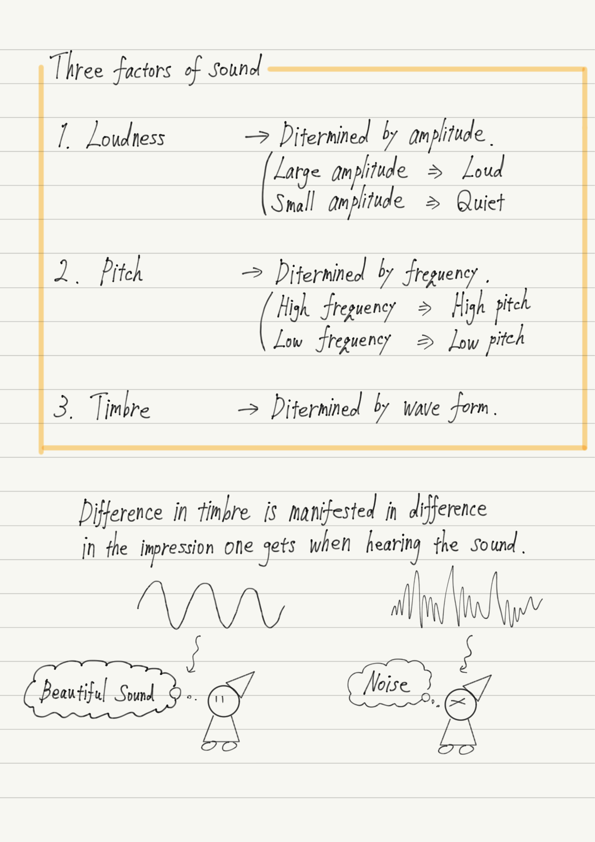 Three factors of sound
1. Loudness → Ditermined by amplitude.
(Large amplitude ⇒ Loud
Small amplitude ⇒ Quiet
2. Pitch → Ditermined by frequency.
(High frequency ⇒ High pitch
Low frequency ⇒ Low pitch
3. Timbre → Ditermined by wave form.
Difference in timbre is manifested in difference
in the impression one gets when hearing the sound.
Beautiful Sound
Noise